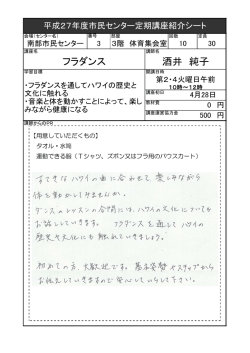 平成27年度市民センター定期講座紹介シート
会場(センター名) 番号 部屋 回数 定員
南部市民センター 3 3階 体育集会室 10 30
講座名 講師名
フラダンス 酒井 純子
学習目標 開講日時
・フラダンスを通してハワイの歴史と
文化に触れる
・音楽と体を動かすことによって、楽し
みながら健康になる
第2・4火曜日午前
10時～12時
講座初日 4月28日
教材費 0 円
講座運営協力金 500 円
講師からのPR
【用意していただくもの】
タオル・水筒
運動できる服（Tシャツ、ズボン又はフラ用のパウスカート）
すてきなハワイの曲に合わせて、楽しみながら
体を動かしてみませんか。
ダンスのレッスンの合間には、ハワイの文化についても
お話していきます。 フラダンスを通してハワイの
歴史や文化にも触れていきましょう。
初めての方、大歓迎です。基本姿勢やステップから
お伝えしていきますので安心していらして下さい。